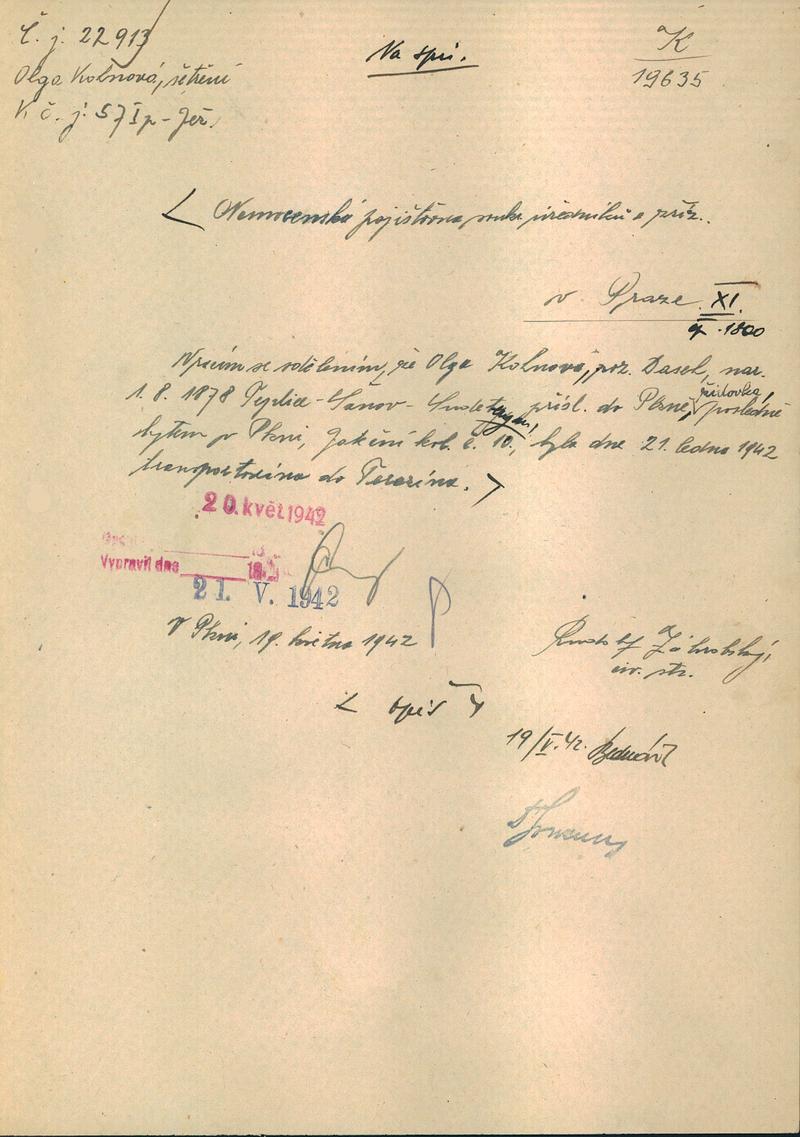 Č. j. 22913
Na spis.
K
19635
Olga Kolnová, šetření
K č. j. 57 Ip - Jer.
Nemocenská pojišťovna soukr. úředníků a zříz.
v Praze XI.
1800
Vracím se sdělením, že Olga Kolnová, roz. Dasel, nar.
1. 8. 1878 Teplice-Šanov - Sudety, přísl. do Plzně, židovka, posledně
bytem v Plzni, kol. č. 10, byla dne 21. ledna 1942
transportována do Terezína.
20. květ 1942
Vypravil dne
21. V. 1942
V Plzni, 19. května 1942
Rudolf
str.
opis
19/V. 42. Bednář